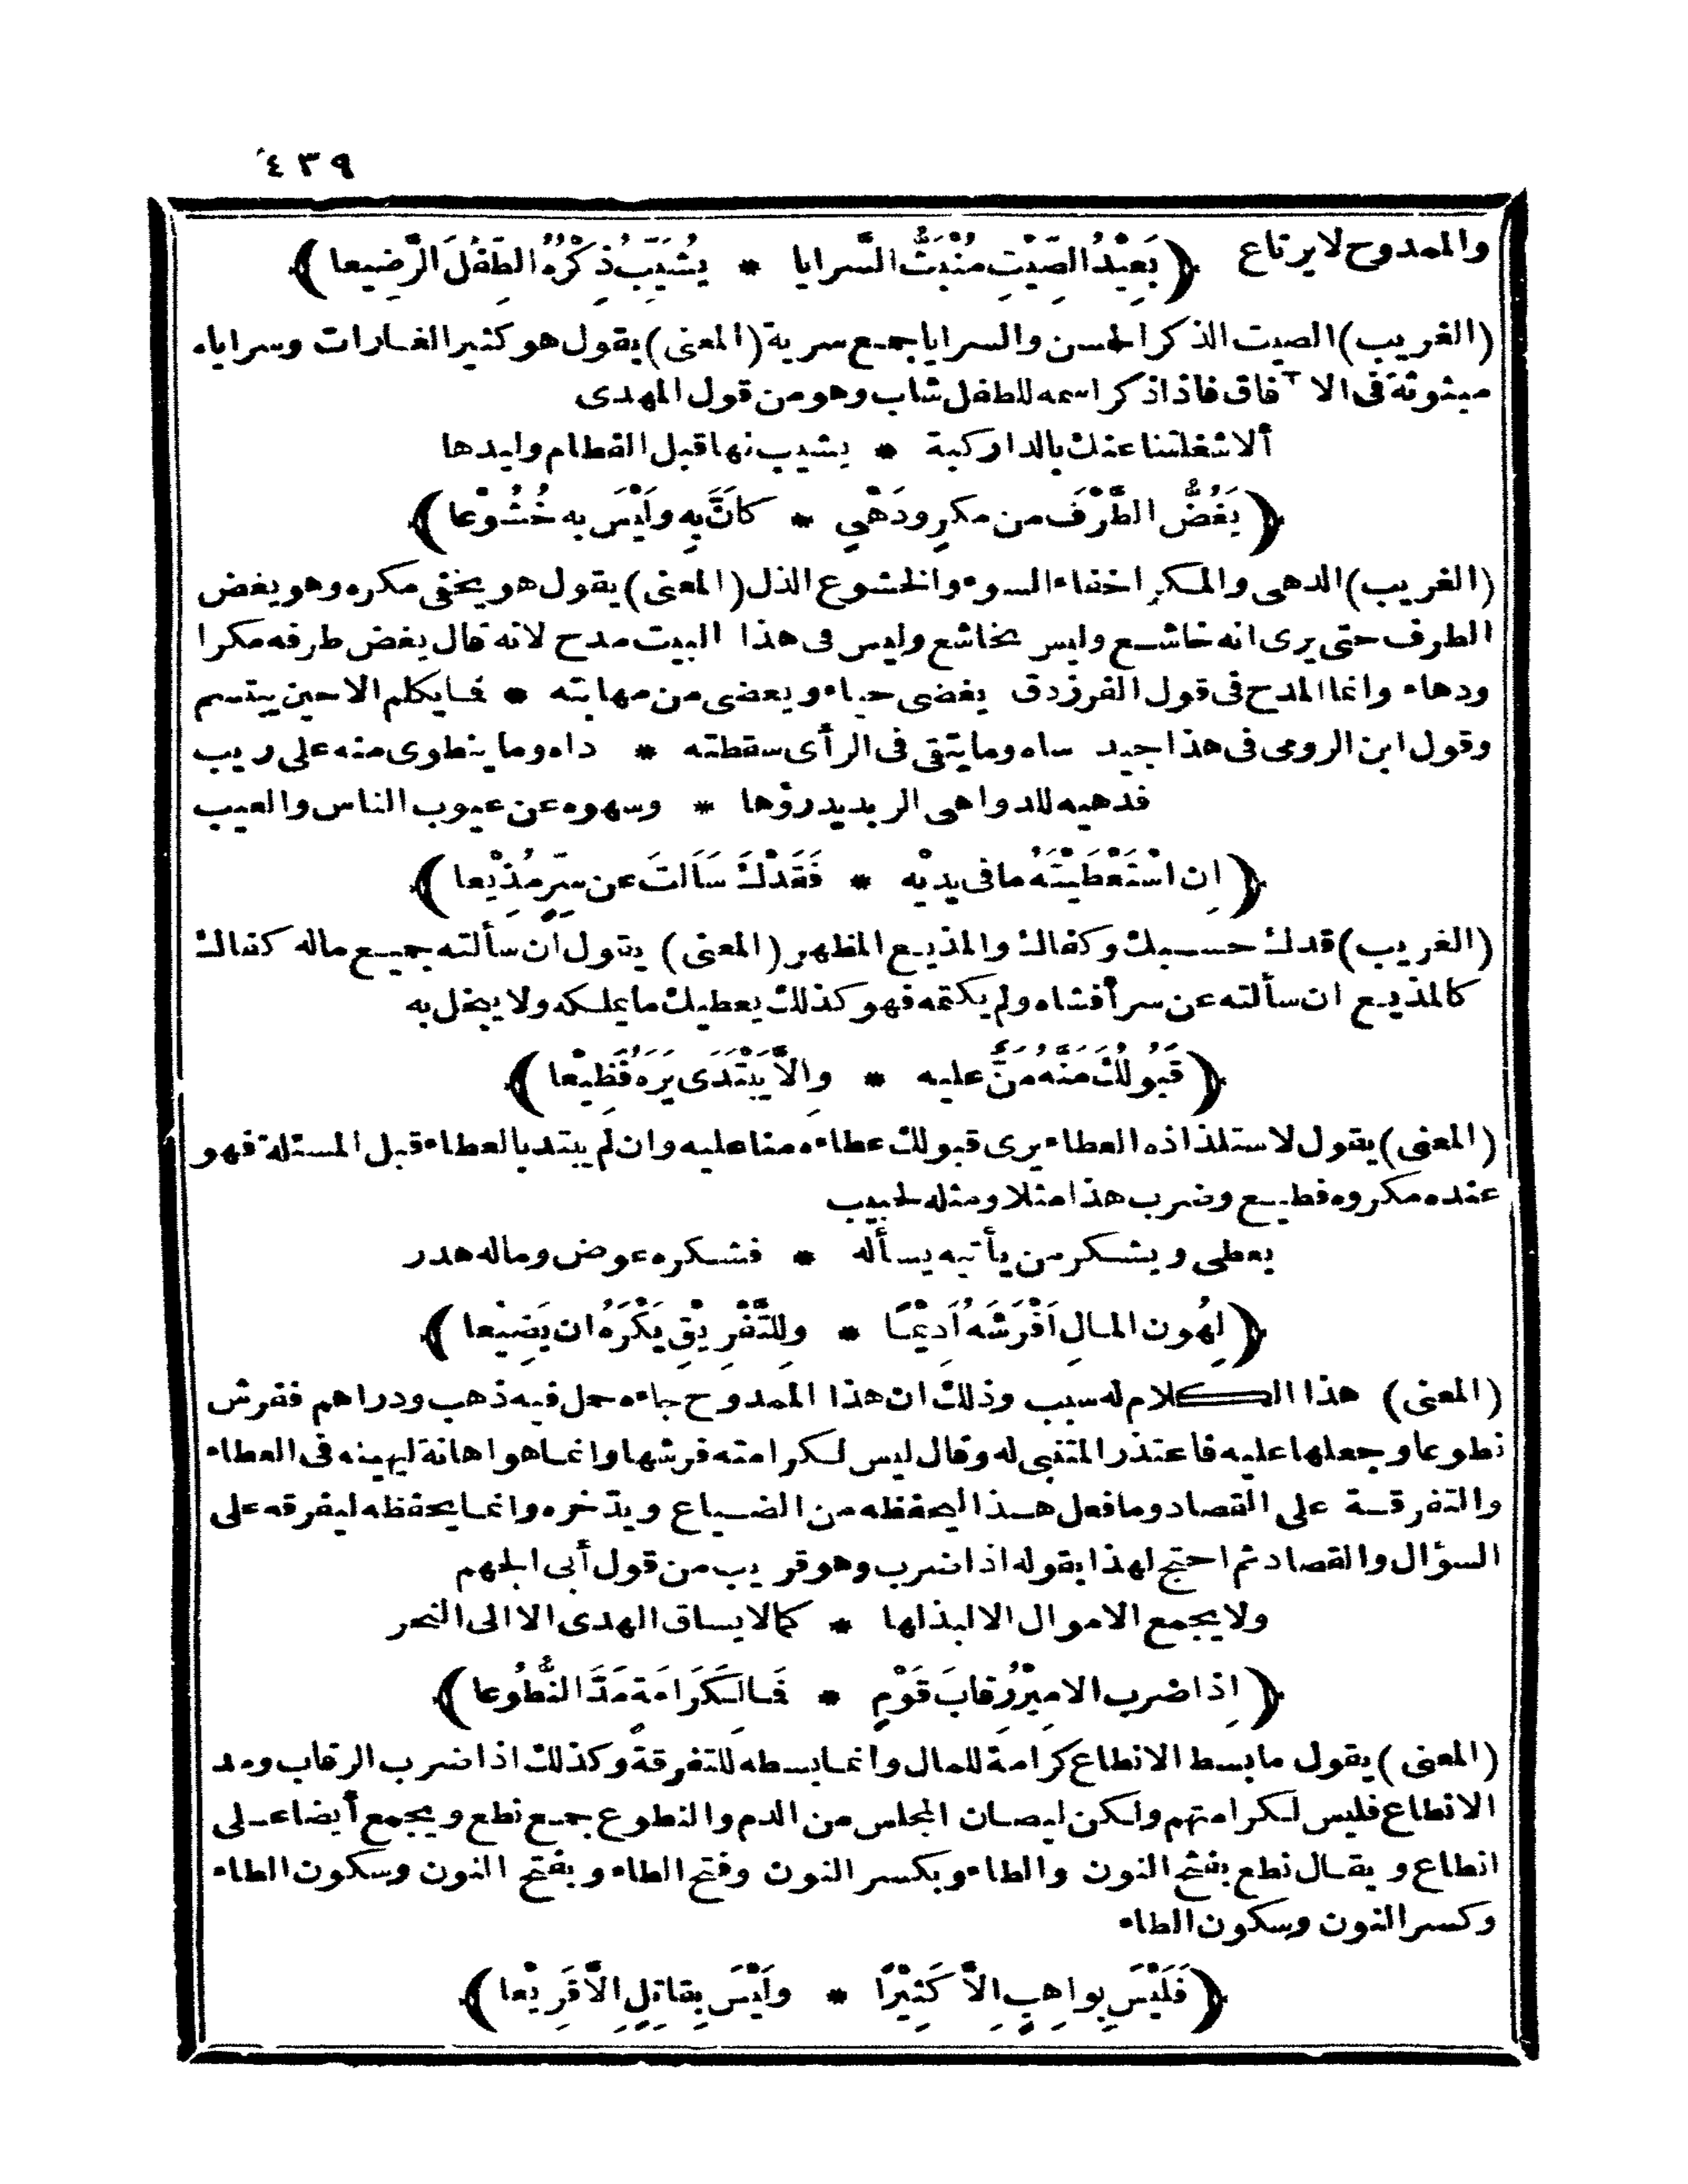 ٤٣٩
والممدوح لا يرتاع ﴿بَعِيْدُ الصِّيْتِ مُنْبَثُّ السَّرايا * يُشَيِّبُ ذِكْرُهُ الطِّفْلَ الرَّضِيعا﴾
(الغريب) الصيت الذكر الحسن والسرايا جمع سرية (المعنى) يقول هو كثير الغارات وسراياه
مبثوثة فى الآفاق فاذا ذكر اسمه للطفل شاب وهو من قول المهدى
ألا شغلتنا عنك بالدار كبة * يشيب نها قبل الفطام وليدها
﴿يَغُضُّ الطَّرْفَ من مكرٍ ودَهْيٍ * كاَنَّ بِهِ ولَيْسَ به خُشُوْعا﴾
(الغريب) الدهى والمكر اخفاء السوء والخشوع الذل (المعنى) يقول هو يخفى مكره وهو يغض
الطرف حتى يرى انه خاشع وليس بخاشع وليس فى هذا البيت مدح لانه قال يغض طرفه مكرا
ودهاء وانما المدح فى قول الفرزدق يغضى حياء ويغضى من مهابته * فما يكلم الاحين يبتسم
وقول ابن الرومى فى هذا جيد ساه وما يتقى فى الرأى سقطته * داه وما ينطوى منه على ريب
فدهيه للدواهى الربد يدرؤها * وسهوه عن عيوب الناس والعيب
﴿اِن اسْتَعْطَيْتَهُ ما فى يديْه * فَقَدْكَ سَاَلتَ عن سِرٍّ مُذِيْعا﴾
(الغريب) قدك حسبك وكفاك والمذيع المظهر (المعنى) يقول ان سألته جميع ماله كفاك
كالمذيع ان سألته عن سر أفشاه ولم يكتمه فهو كذلك يعطيك ما يملكه ولا يبخل به
﴿قَبُولُكَ مَنَّهُ مَنٌّ عليه * واِلاَّ يَبْتَدَى يَرَهُ فَظِيْعا﴾
(المعنى) يقول لاستلذاذه العطاء يرى قبولك عطاءه منا عليه وان لم يبتد بالعطاء قبل المسئلة فهو
عنده مكروه فظيع وضرب هذا مثلا ومثله لحبيب
يعطى ويشكر من يأتيه يسأله * فشكره عوض وماله هدر
﴿لِهُون المالِ اَفْرَشَهُ اَدِيْمًا * ولِلتَّفْرِيْقِ يَكْرَهُ ان يَضِيْعا﴾
(المعنى) هذا الكلام له سبب وذلك ان هذا الممدوح جاءه حمل فيه ذهب ودراهم ففرش
نطوعا وجعلها عليه فاعتذر المتنبى له وقال ليس لكرامته فرشها وانما هو اهانة ليهينه فى العطاء
والتفرقة على القصاد وما فعل هذا ليحفظه من الضياع ويدّخره وانما يحفظه ليفرقه على
السؤال والقصاد ثم احتج لهذا بقوله اذا ضرب وهو قريب من قول أبى الجهم
ولا يجمع الاموال الا لبذلها * كما لا يساق الهدى الا الى النحر
﴿اِذا ضرب الاميْرُ رِقابَ قَوْمٍ * فما لِكَرَامَةٍ مَدَّ النُّطُوعا﴾
(المعنى) يقول ما بسط الانطاع كرامة للمال وانما بسطه للتفرقة وكذلك اذا ضرب الرقاب ومد
الانطاع فليس لكرامتهم ولكن ليصان المجلس من الدم والنطوع جمع نطع ويجمع أيضا على
انطاع ويقال نطع بفتح النون والطاء وبكسر النون وفتح الطاء وبفتح النون وسكون الطاء
وكسر النون وسكون الطاء
﴿فَلَيْسَ بِواهِبٍ اِلاَّ كَثِيْرًا * ولَيْسَ بِقاتِلٍ اِلاَّ قَرِيْعا﴾